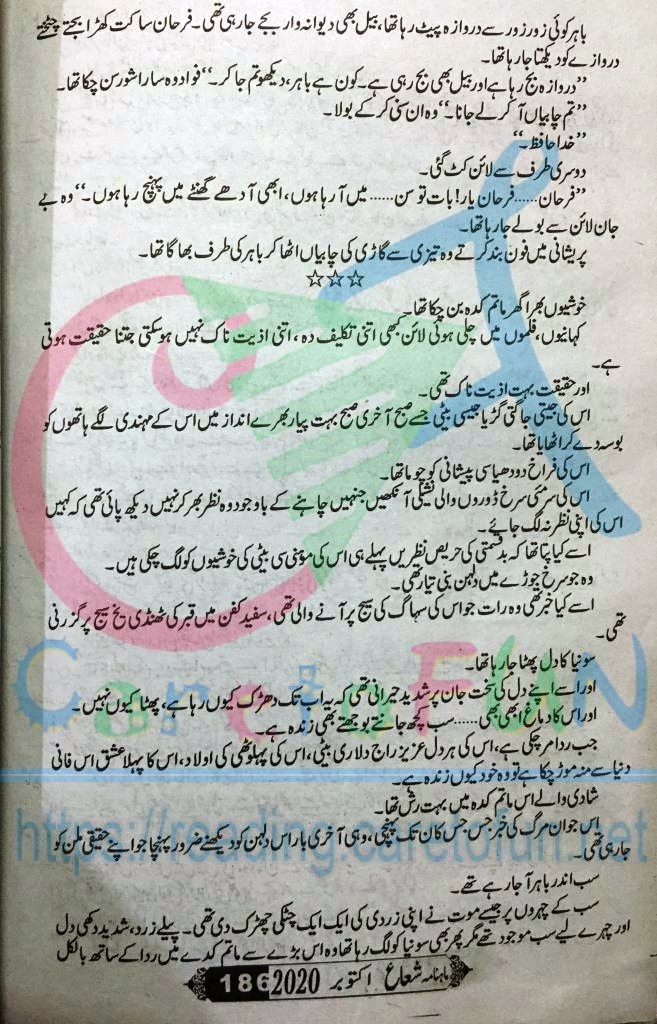 باہر کوئی زور زور سے دروازہ پیٹ رہا تھا، بیل بھی دیوانہ وار بجے جا رہی تھی۔ فرحان ساکت کھڑا بجتے چیختے
دروازے کو دیکھتا جا رہا تھا۔
”دروازہ بج رہا ہے اور بیل بھی بج رہی ہے۔ کون ہے باہر، دیکھو تم جا کر۔“ فواد وہ سارا شور سن چکا تھا۔
”تم چابیاں آ کر لے جانا۔“ وہ ان سنی کر کے بولا۔
”خدا حافظ۔“
دوسری طرف سے لائن کٹ گئی۔
”فرحان...... فرحان یار! بات تو سن...... میں آ رہا ہوں، ابھی آدھے گھنٹے میں پہنچ رہا ہوں۔“ وہ بے
جان لائن سے بولے جا رہا تھا۔
پریشانی میں فون بند کرتے وہ تیزی سے گاڑی کی چابیاں اٹھا کر باہر کی طرف بھاگا تھا۔
☆☆☆
خوشیوں بھرا گھر ماتم کدہ بن چکا تھا۔
کہانیوں، فلموں میں چلی ہوئی لائن کبھی اتنی تکلیف دہ، اتنی اذیت ناک نہیں ہو سکتی جتنا حقیقت ہوتی
ہے۔
اور حقیقت بہت اذیت ناک تھی۔
اس کی جیتی جاگتی گڑیا جیسی بیٹی جسے صبح آخری صبح بہت پیار بھرے انداز میں اس کے مہندی لگے ہاتھوں کو
بوسہ دے کر اٹھایا تھا۔
اس کی فراخ دودھیا سی پیشانی کو چوما تھا۔
اس کی سرمئی سرخ ڈوروں والی نشیلی آنکھیں جنہیں چاہنے کے باوجود وہ نظر بھر کر نہیں دیکھ پائی تھی کہ کہیں
اس کی اپنی نظر نہ لگ جائے۔
اسے کیا پتا تھا کہ بدقسمتی کی حریص نظریں پہلے ہی اس کی موہنی سی بیٹی کی خوشیوں کو لگ چکی ہیں۔
وہ جو سرخ جوڑے میں دلہن بنی تیار تھی۔
اسے کیا خبر تھی وہ رات جو اس کی سہاگ کی سیج پر آنے والی تھی، سفید کفن میں قبر کی ٹھنڈی یخ سیج پر گزرنی
تھی۔
سونیا کا دل پھٹا جا رہا تھا۔
اور اسے اپنے دل کی سخت جان پر شدید حیرانی تھی کہ یہ اب تک دھڑک کیوں رہا ہے، پھٹا کیوں نہیں۔
اور اس کا دماغ ابھی بھی...... سب کچھ جانتے بوجھتے بھی زندہ ہے۔
جب ردا مر چکی ہے، اس کی ہر دل عزیز راج دلاری بیٹی، اس کی پہلوٹھی کی اولاد، اس کا پہلا عشق اس فانی
دنیا سے منہ موڑ چکا ہے تو وہ خود کیوں زندہ ہے۔
شادی والے اس ماتم کدہ میں بہت رش تھا۔
اس جوان مرگ کی خبر جس جس کان تک پہنچی، وہی آخری بار اس دلہن کو دیکھنے ضرور پہنچا جو اپنے حقیقی ملن کو
جا رہی تھی۔
سب اندر باہر آ جا رہے تھے۔
سب کے چہروں پر جیسے موت نے اپنی زردی کی ایک ایک چٹکی چھڑک دی تھی۔ پیلے زرد، شدید دکھی دل
اور چہرے لیے سب موجود تھے مگر پھر بھی سونیا کو لگ رہا تھا وہ اس بڑے سے ماتم کدے میں ردا کے ساتھ بالکل
ماہنامہ شعاع اکتوبر 2020 186
CareToFUN
https://reading.caretofun.net